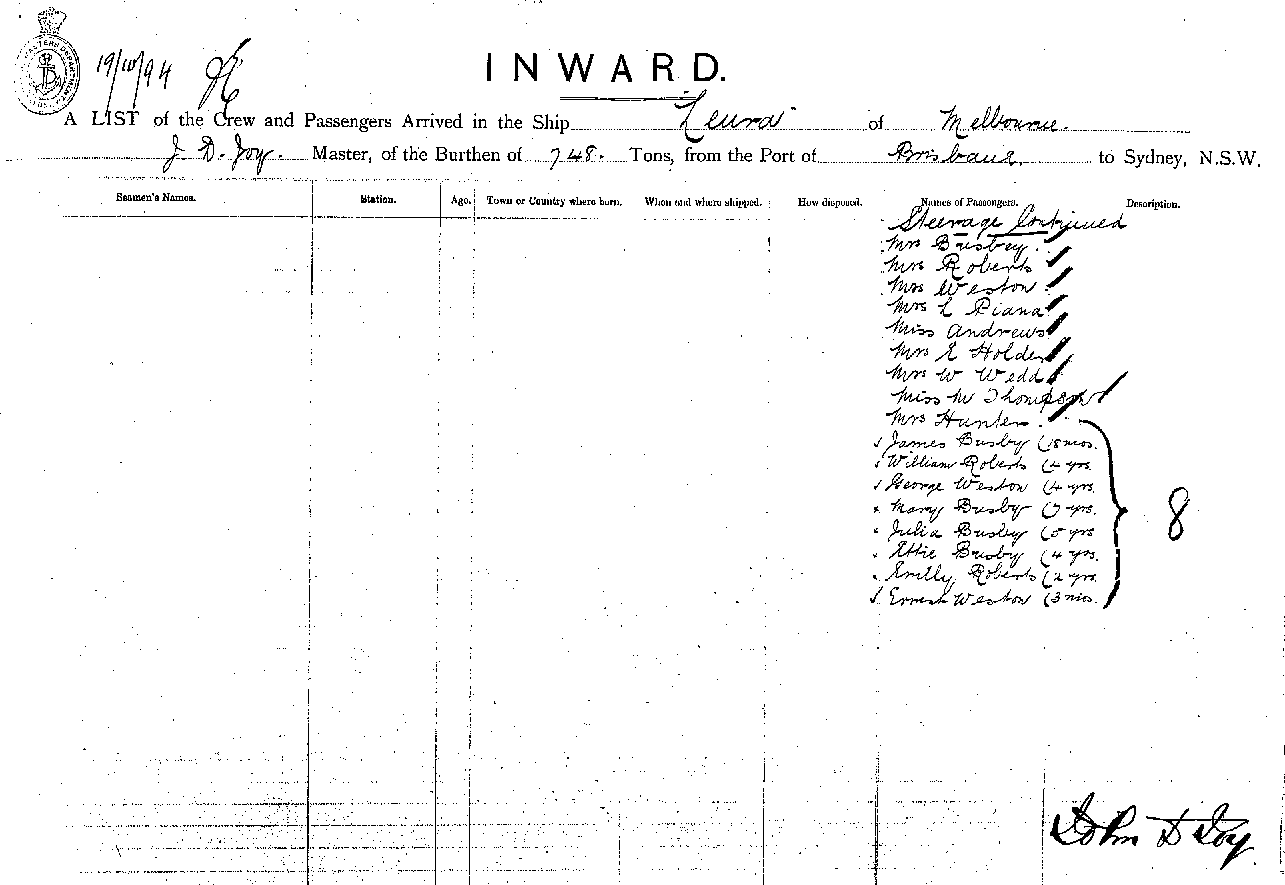 19/10/94
INWARD.
A LIST of the Crew and Passengers Arrived in the Ship Leura of Melbourne.
J. D. Joy. Master, of the Burthen of 748. Tons, from the Port of Brisbane, to Sydney, N.S.W.
Seamen's Names. Station. Age. Town or Country where born. When and where shipped. How disposed. Names of Passengers. Description.
Steerage Continued
Mrs Busbey.
Mrs Roberts
Mrs Weston
Mrs L Piana
Miss Andrews
Mrs E Holden
Mrs W Wedd
Miss M Thompson
Mrs Hunter.
James Busby (18 mos.
William Roberts (4 yrs.
George Weston (4 yrs.
Mary Busby (7 yrs.
Julia Busby (5 yrs
Ettie Busby (4 yrs.
Emily Roberts (2 yrs.
Ernest Weston (3 mos.
8
John D Joy